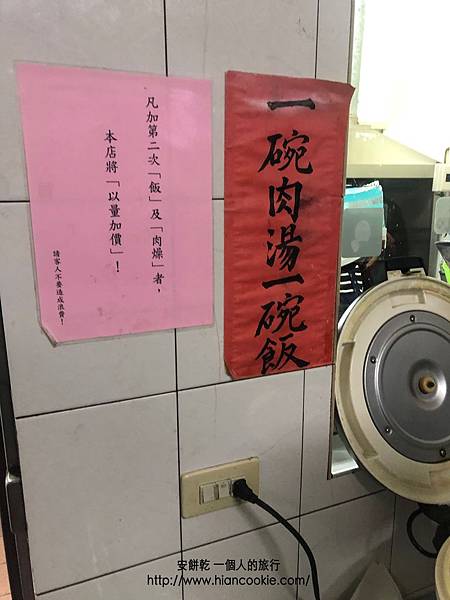 凡加第二次「飯」及「肉燥」者，
本店將「以量加價」！
請客人不要造成浪費！
一碗肉湯一碗飯
安餅乾 一個人的旅行
http://www.hiancookie.com/